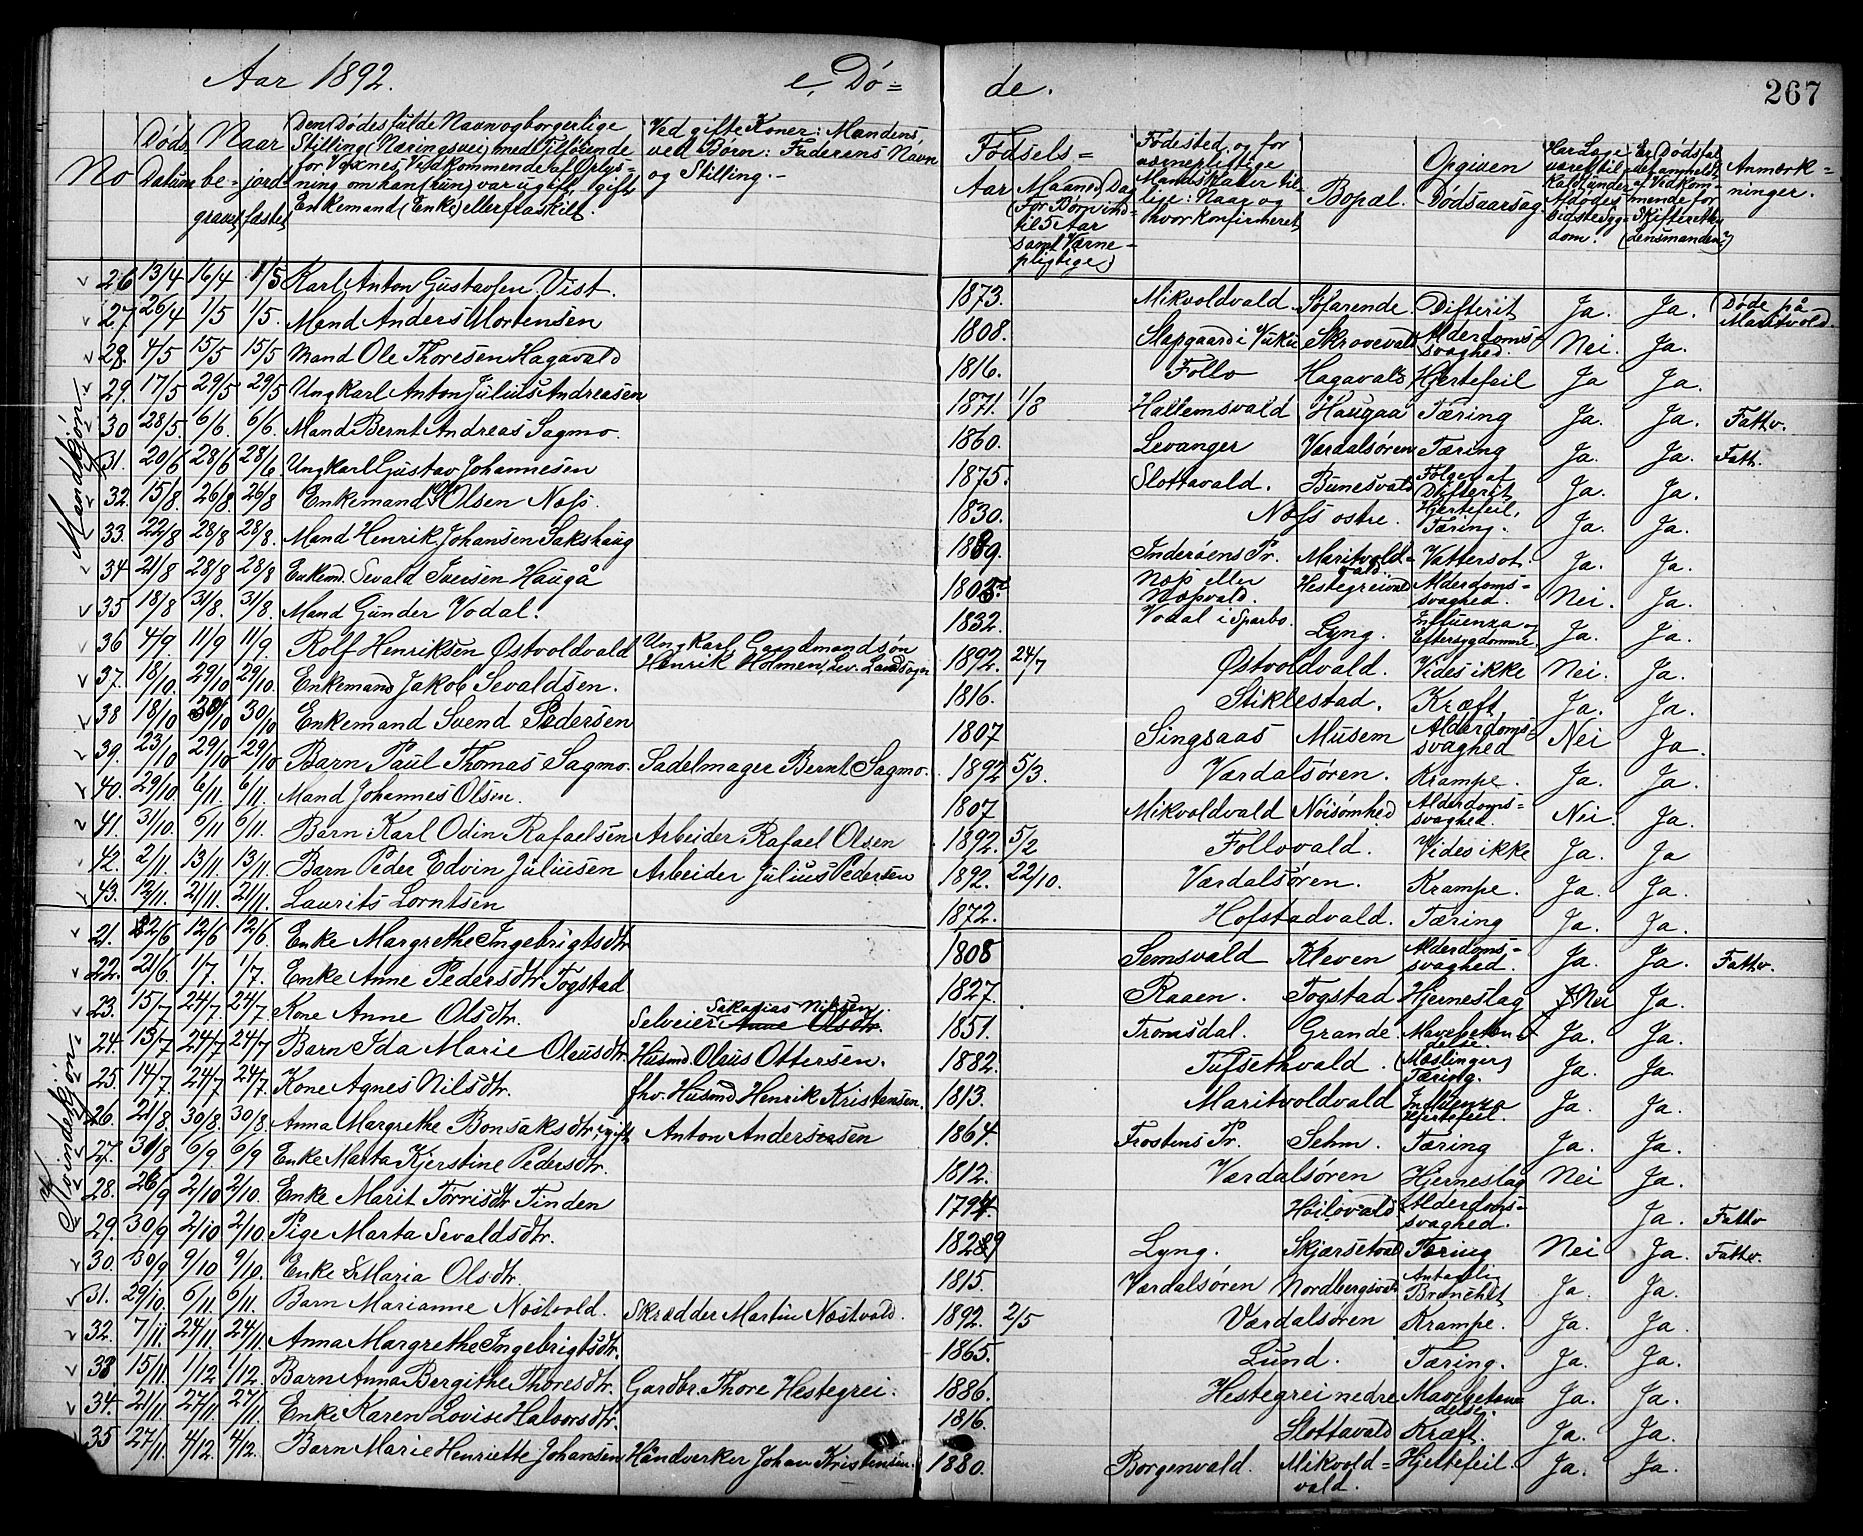 Aar 1892. e, Dö= de. 267
No
Döds Datum
Naar be=gravet
jord fæstet
Den Dödes fulde Navn og borgerlige
Stilling (Næringsvei) med Tilföiende
for Voxnes Vedkommende af Oplys-
ning om han (hun) var ugift, gift
Enkemand (Enke) eller fraskilt.
Ved gifte Koner: Mandens
ved Börn: Faderens Navn
og Stilling.
Födsels=
Aar Maaned, Dag
(For Börn ind-
til 5 Aar
samt Værne-
pligtige)
Födested, og for
værnepligtige
Mandskaber til-
lige: Naar og
hvor konfirmeret
Bopæl.
Opgiven
Dödsaarsag
Har Læge
været til-
kaldt under
Afdödes
sidste Syg-
dom.
Er Dödsfal-
det anmeldt
af Vedkom-
mende for
Skifteretten
(Lensmanden?)
Anmærk-
ninger.
Mandkjön
26 13/4 16/4 1/5 Karl Anton Gustavsen Vist. 1873. Mikvoldvald Söfarende. Difterit Ja. Ja. Döde på Maritvold.
27 26/4 1/5 1/5. Mand Anders Mortensen 1808. Slapgaard i Vuku Skrovevald Alderdoms-svaghed. Nei. Ja.
28. 4/5 15/5 15/5 Mand Ole Thoresen Hagavald 1816. Follo Hagavald Hjertefeil Ja Ja.
29. 17/5 29/5 29/5 Ungkarl Anton Julius Andreasen 1871. 1/8 Hallemsvald Haugaa Tæring Ja. Ja. Fattv.
30 28/5. 6/6. 6/6. Mand Bernt Andreas Sagmo. 1860. Levanger Værdalsören Tæring Ja. Ja. Fatt.
31. 20/6 28/6 28/6 Ungkarl Gustav Johannesen 1875. Slottavald. Bunesvald Fölgen af Difterit Ja. Ja.
32. 15/8. 26/8. 26/8 Enkemand Olsen Næss. 1830. Næss östre. Hjertefeil, Tæring. Ja. Ja.
33. 22/8 28/8 28/8. Mand Henrik Johansen Sakshaug 1889. Inderöens Pr. Maritvold-vald Vattersot. Ja. Ja.
34 21/8 28/8 28/8. Enkemd. Sevald Iversen Haugå Næss eller Næssvald. Hestegreivald Alderdoms-svaghed. Nei. Ja.
35 18/8 31/8. 31/8. Mand Gunder Vodal. 1832. Vodal i Sparbo. Lyng. Influenza og Eftersygdomme. Ja. Ja.
36 4/9. 11/9 11/9. Rolf Henriksen Östvoldvald Ungkarl, Gaardmandsön Henrik Holmen, Lev. Landsogn 1892. 24/7 Östvoldvald. Vides ikke Nei. Ja.
37. 18/10. 29/10 29/10. Enkemand Jakob Sevaldsen. 1816. Stiklestad. Kræft Ja. Ja.
38 18/10 30/10 30/10 Enkemand Svend Pedersen 1807 Singsaas Musem Alderdoms-svaghed Nei Ja.
39. 23/10 29/10 29/10 Barn Paul Thomas Sagmo. Sadelmager Bernt Sagmo. 1892 5/3. Værdalsören. Krampe. Ja. Ja.
40. 29/10 6/11. 6/11. Mand Johannes Olsen. 1807 Mikvoldvald Nöisomhed Alderdoms-svaghed Nei. Ja.
41. 31/10. 6/11 6/11. Barn Karl Odin Rafaelsen Arbeider Rafael Olsen 1892. 5/2 Follovald. Vides ikke Ja. Ja
42. 2/11. 13/11 13/11. Barn Peder Edvin Juliusen Arbeider Julius Pedersen 1892. 22/10. Værdalsören. Krampe. Ja. Ja.
43. 12/11. 21/11. 21/11. Laurits Lorntsen 1872. Hofstadvald. Tæring Ja. Ja.
Kvindekjön
21. 2/6 12/6 12/6. Enke Margrethe Ingebrigtsdtr. 1808 Semsvald Kleven Alderdoms-svaghed. Ja. Ja. Fattv.
22. 21/6 1/7. 1/7. Enke Anne Pedersdtr. Togstad 1827. Raaen. Togstad Hjerneslag Nei Ja.
23. 15/7 24/7. 24/7 Kone Anne Olsdtr. Selveier Sakarias Nilssen Anne Olsdtr. 1851. Tromsdal. Grande. Mavebetændelse. Ja. Ja.
24. 13/7 24/7 24/7 Barn Ida Marie Oleusdtr. Husmd. Oleus Ottersen. 1882. Tufsethvald. (Mæslinger) Tæring. Ja. Ja.
25. 14/7. 24/7 24/7 Kone Agnes Nilsdtr. fhv. Husmd Henrik Kristensen. 1813. Maritvoldvald Influenza Hjertefeil. Ja. Ja.
26. 21/8. 30/8. 30/8. Anna Margrethe Bonsaksdtr., gift Anton Andersen 1864. Frostens Pr. Sehm. Tæring Ja. Ja.
27. 30/8 6/9 6/9 Enke Marta Kjerstine Pedersdtr. 1812. Værdalsören Hjerneslag Nei Ja.
28. 26/9 2/10 2/10. Enke Marit Torrisdtr. Tinden 1794. Höilovald Alderdoms-svaghed. Ja. Fattv
29. 30/9 2/10 2/10. Pige Marta Sevaldsdtr. 1829 Lyng. Skjærsetvald Tæring Nei Ja. Fattv.
30. 30/9 9/10 9/10. Enke Maria Olsdtr. 1815. Værdalsören Nordbergsvald Antagelig Bronchit Ja. Ja.
31. 29/10. 6/11. 6/11. Barn Marianne Næstvold. Skrædder Martin Næstvold. 1892. 2/5 Værdalsören Krampe. Ja. Ja.
32. 7/11. 24/11. 24/11. Anna Margrethe Ingebrigtsdtr. 1865. Lund. Tæring. Ja. Ja.
33 15/11. 1/12 1/12. Barn Anna Bergithe Thoresdtr. Gardbr. Thore Hestegrei. 1886. Hestegrei nedre Mavebetændelse. Ja. Ja.
34. 21/11 27/11. 27/11. Enke Karen Lovise Halvorsdtr. 1816. Slottavald Kræft. Ja. Ja.
35 27/11. 4/12. 4/12. Barn Marie Henriette Johansen Håndverker Johan Kristensen. 1880. Borgenvald. Mikvold=vald. Hjertefeil. Ja. Ja.